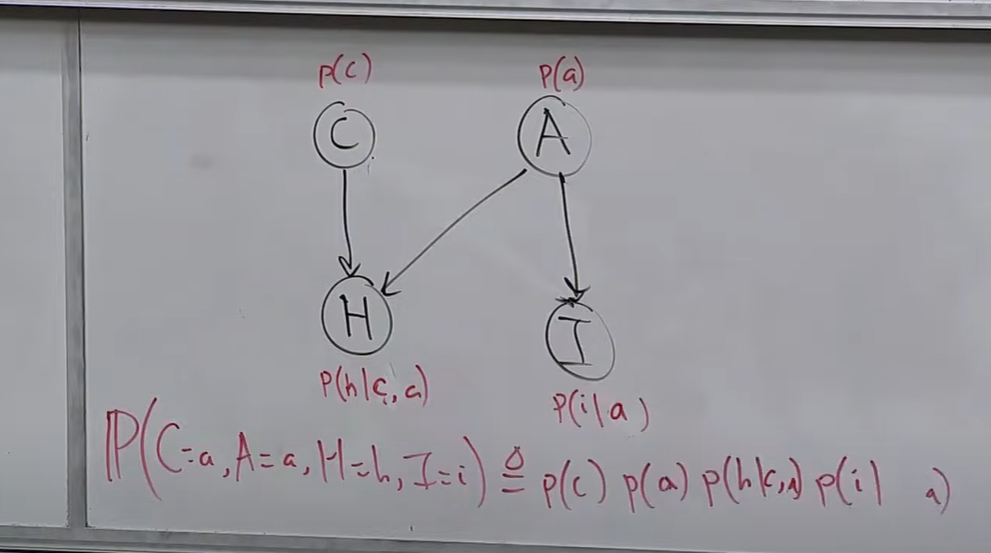 p(c) p(a)
C A
H I
p(h|c,a)
p(i|a)
ℙ(C=a, A=a, H=h, I=i) ≜ p(c) p(a) p(h|c,a) p(i| a)